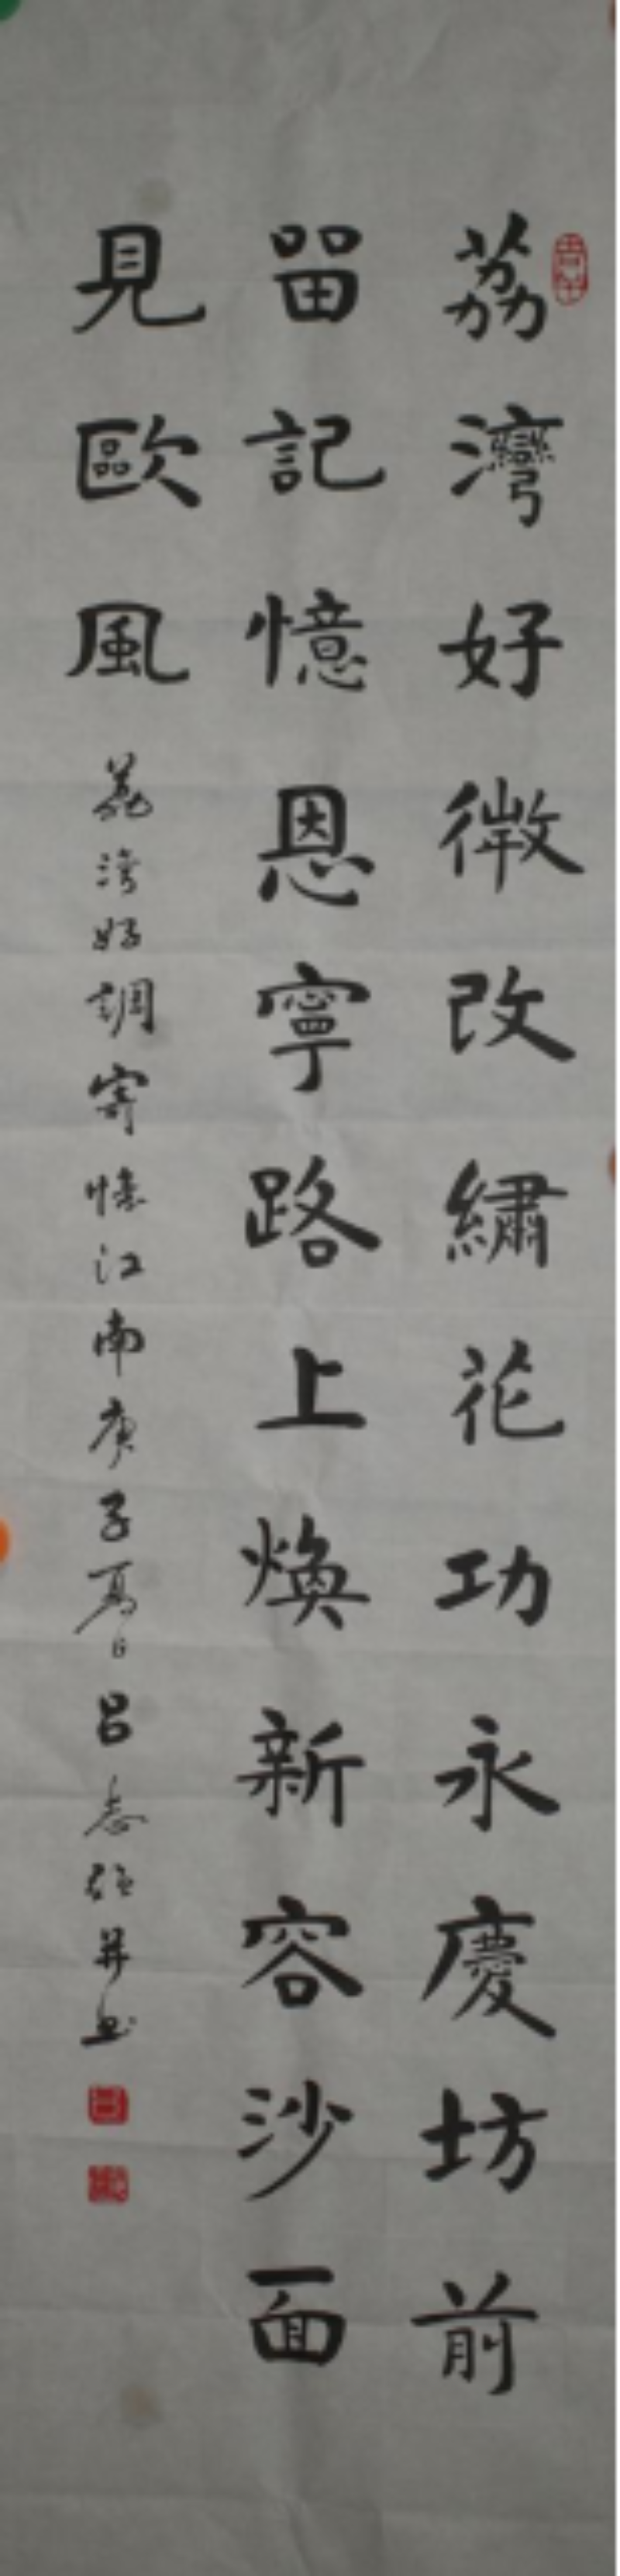 荔灣好微改繡花功永慶坊前
留記憶恩寧路上煥新容沙面
見歐風
荔灣好調寄憶江南庚子夏日呂志強并書